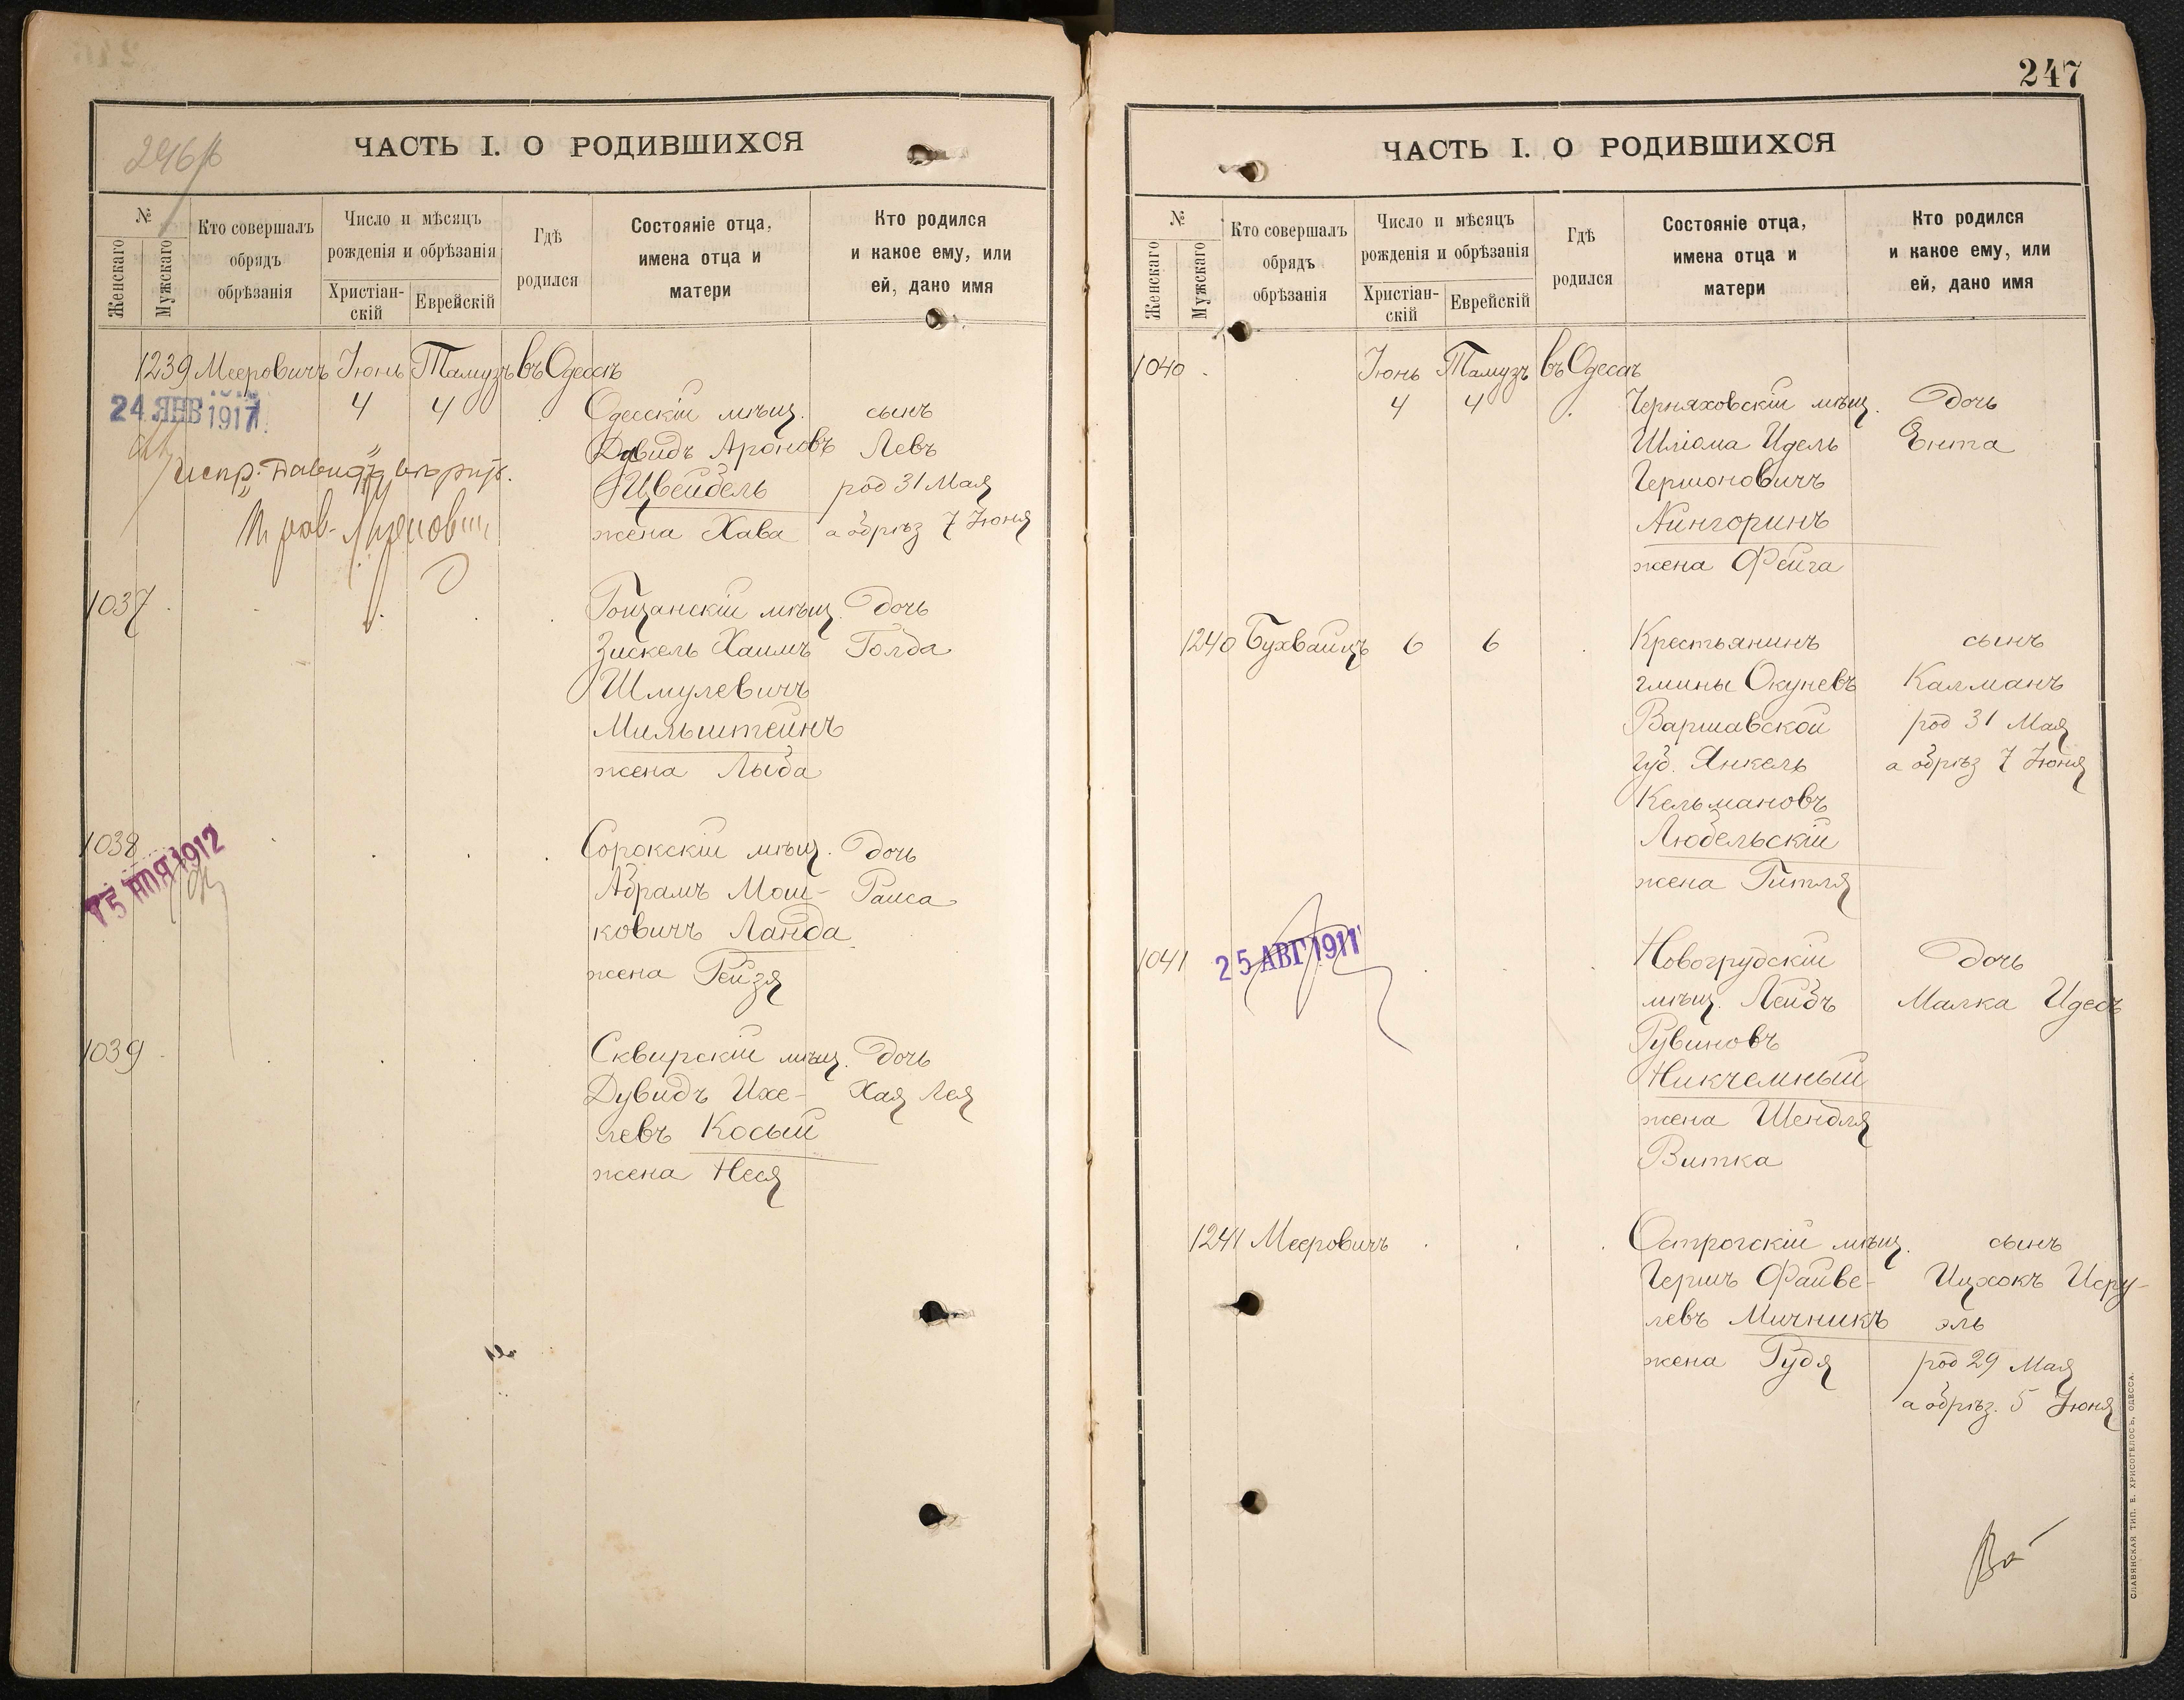 ЧАСТЬ I. О РОДИВШИХСЯ
№
Женскаго
Мужскаго
Кто совершалъ
обрядъ
обрѣзанія
Число и мѣсяцъ
рожденія и обрѣзанія
Христіан-
скій
Еврейскій
Гдѣ
родился
Состояніе отца,
имена отца и
матери
Кто родился
и какое ему, или
ей, дано имя
1239 Мееровичъ Іюнь Тамузъ въ Одессѣ
24 ЯНВ 1917
4 4 Одесскій мѣщ. сынъ
Давидъ Ароновъ Левъ
испр: „Давидъ“
Цвейбель род 31 Мая
жена Хава а обрѣз 7 Іюня
1037 мѣщ. дочь
Зискель Хаимъ Голда
Шмулевичъ
Мильштейнъ
жена Лыба
1038 Сорокскій мѣщ. дочь
1912
Абрамъ Мош- Раиса
ковичъ Ланда
жена Рейзя
1039 Сквирскій мѣщ. дочь
Дувидъ Ихе- Хая Лея
левъ Косый
жена Неся
247
ЧАСТЬ I. О РОДИВШИХСЯ
№
Женскаго
Мужскаго
Кто совершалъ
обрядъ
обрѣзанія
Число и мѣсяцъ
рожденія и обрѣзанія
Христіан-
скій
Еврейскій
Гдѣ
родился
Состояніе отца,
имена отца и
матери
Кто родился
и какое ему, или
ей, дано имя
1040 Іюнь Тамузъ въ Одессѣ
4 4 Черняховскій мѣщ. дочь
Шліома Идель Ента
Гершоновичъ
Нингоринъ
жена Фейга
1240 Бухбаумъ 6 6 Крестьянинъ сынъ
гмины Окуневъ Калманъ
Варшавской род 31 Мая
губ. Янкель а обрѣз 7 Іюня
Кельмановъ
Любельскій
жена Гитля
1041 25 АВГ 1911 Новогрудскій дочь
мѣщ. Лейбъ Малка Идесъ
Рувиновъ
Никчемный
жена Шендля
Витка
1241 Мееровичъ Острогскій мѣщ. сынъ
Гершъ Файве- Ицхокъ Исру-
левъ Мичникъ эль
жена Гудя род 29 Мая
а обрѣз. 5 Іюня
СЛАВЯНСКАЯ ТИП. Е. ХРИСОГЕЛОСЪ, ОДЕССА.